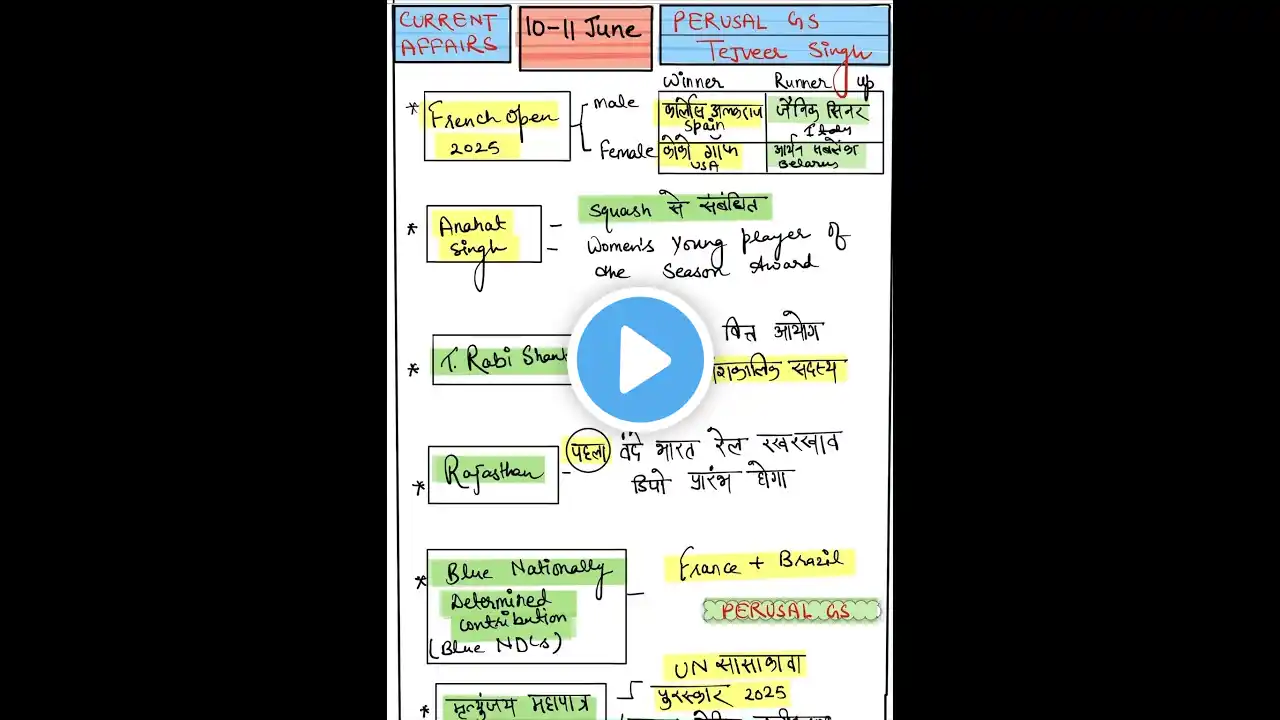 CURRENT AFFAIRS
10-11 June
PERUSAL GS
Tejveer Singh
Winner Runner up
* French Open 2025
male कार्लोस अल्काराज Spain जैनिक सिनर Italy
Female कोको गॉफ USA आर्यना सबालेंका Belarus
* Anahat Singh
- Squash से संबंधित
- Women's Young player of
the Season Award
* T. Rabi Shank
वित्त आयोग
शकालिक सदस्य
* Rajasthan - पहला वंदे भारत रेल रखरखाव
डिपो प्रारंभ होगा
* Blue Nationally
Determined
contribution
(Blue NDCs)
- France + Brazil
PERUSAL GS
UN सासाकावा
पुरस्कार 2025
* मृत्युंजय महापात्र